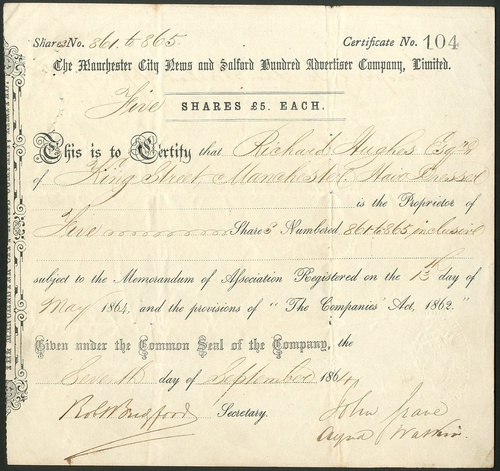 Shares No. 861 to 865. Certificate No. 104
The Manchester City News and Salford Hundred Advertiser Company, Limited.
Five SHARES £5. EACH.
This is to Certify that Richard Hughes Esqre
of King Street, Manchester, Hair Dresser
is the Proprietor of
Five Shares Numbered 861 to 865 inclusive
subject to the Memorandum of Association Registered on the 13th day of
May 1864, and the provisions of "The Companies' Act, 1862."
Given under the Common Seal of the Company, the
Seventh day of September 1864
Secretary. John
Watkin